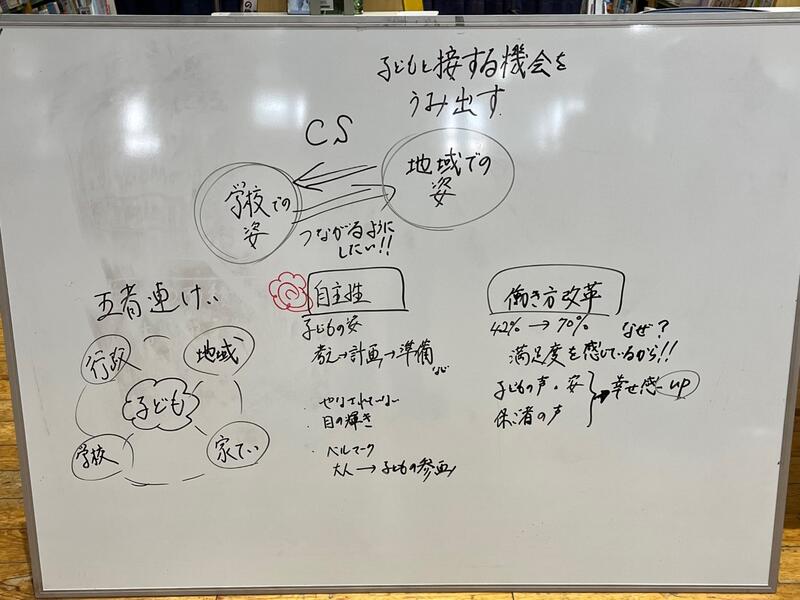 子どもと接する機会を
うみ出す
CS
地域での
姿
学校での
姿
つながるように
したい!!
五者連けい
行政
地域
子ども
学校
家てい
自主性
子どもの姿
考え→計画→準備
など
・やらされていない
目の輝き
・ベルマーク
大人→子どもの参画
働き方改革
42%→70% なぜ?
満足度を感じているから!!
子どもの声・姿
の声
幸せ感up